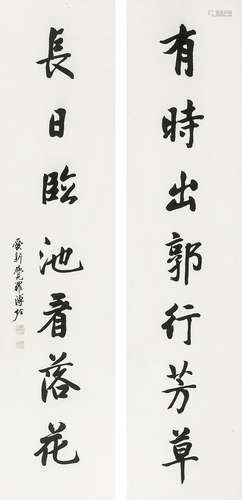 有時出郭行芳草
長日臨池看落花
愛新覺羅溥佐